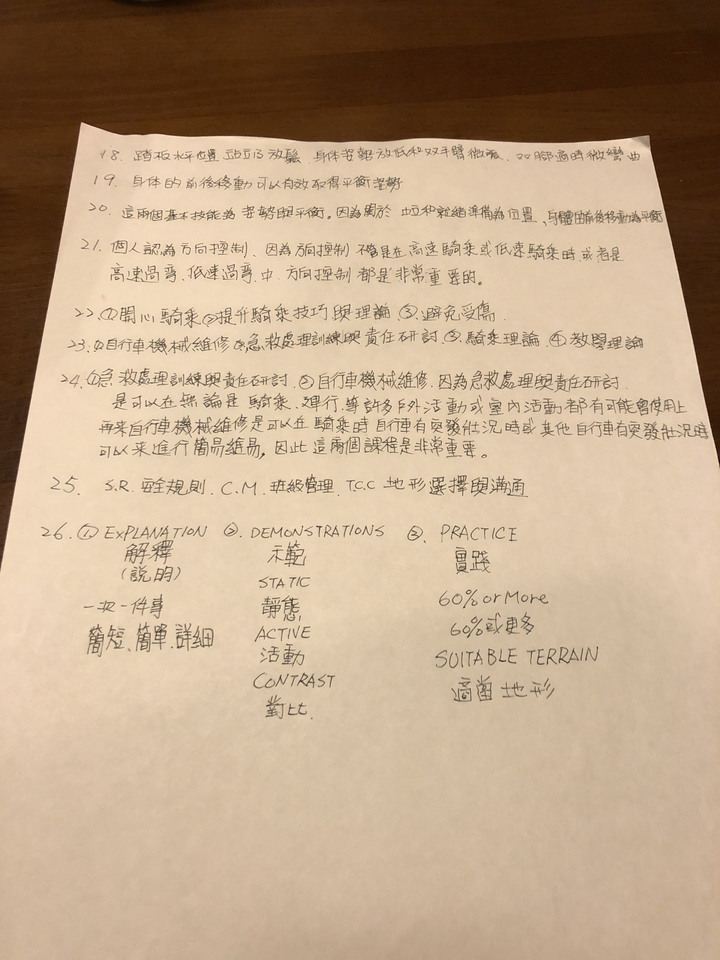 18. 踏板水平位置 站立得放鬆 身体姿勢放低和双手臂微張、双腳適時微彎曲
19. 身体的前後移動可以有效取得平衡姿勢
20. 這兩個基本技能為 姿勢與平衡。因為關於 和就緒準備為位置、身體由前後移動為平衡
21. 個人認為方向控制、因為方向控制 不管是在高速騎乘或低速騎乘時 或者是
高速過彎、低速過彎、中、方向控制 都是非常重要的。
22. ①開心騎乘 ②提升騎乘技巧與理論 ③.避免受傷.
23. ①自行車機械維修 ②急救處理訓練與責任研討 ③.騎乘理論. ④教學理論
24. ①急救處理訓練與責任研討. ②自行車機械維修. 因為急救處理與責任研討.
是可以在無論是騎乘、健行、等許多戶外活動或室內活動都有可能會使用上
再來自行車機械維修是可以在騎乘時 自行車有突發狀況時或其他自行車有突發狀況時
可以來進行簡易維易, 因此這兩個課程是非常重要。
25. S.R. 安全規則. C.M. 班級管理. T.C.C 地形選擇與溝通
26. ① EXPLANATION ②. DEMONSTRATIONS ③. PRACTICE
解釋 示範 實踐
(説明) STATIC
一次一件事 靜態 60% or More
簡短、簡單、詳細 ACTIVE 60%或更多
活動 SUITABLE TERRAIN
CONTRAST 適當地形
對比.